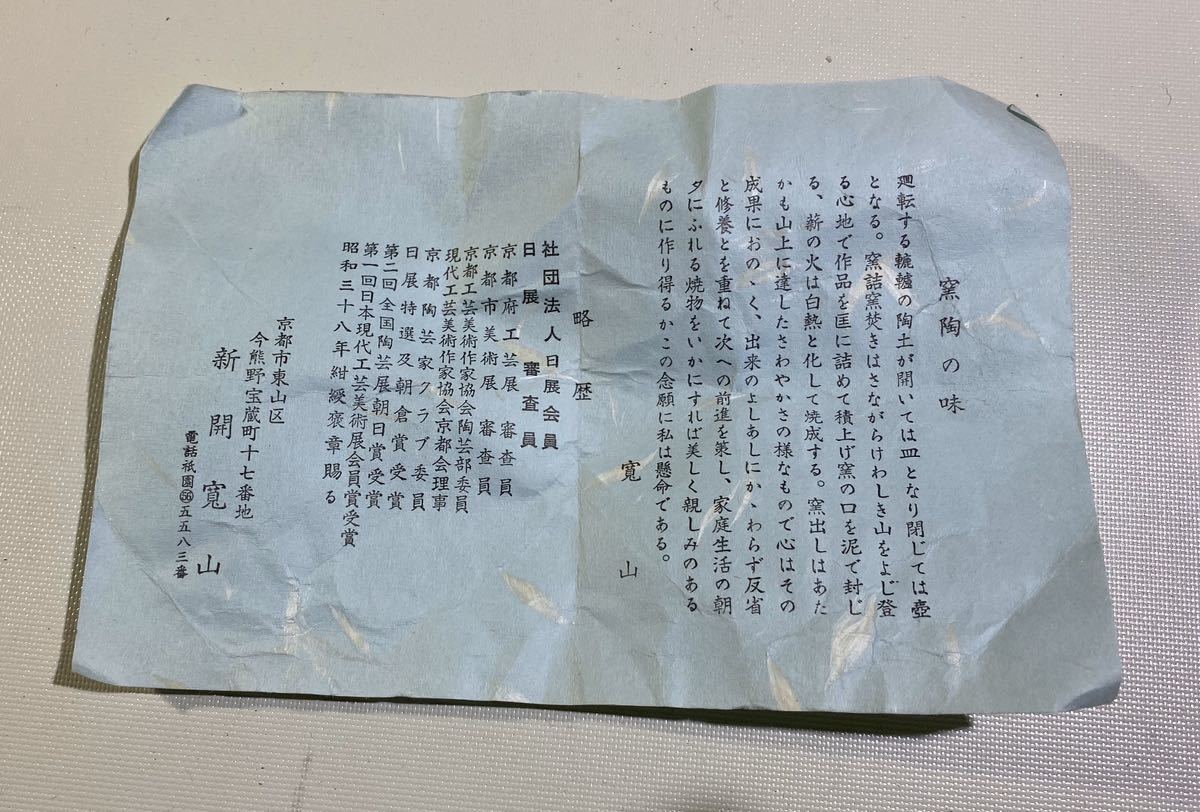 窯陶の味
廻転する轆轤の陶土が開いては皿となり閉じては壺
となる。窯詰窯焚きはさながらけわしき山をよじ登
る心地で作品を匡に詰めて積上げ窯の口を泥で封じ
る、薪の火は白熱と化して焼成する。窯出しはあた
かも山上に達したさわやかさの様なもので心はその
成果におのゝく、出来のよしあしにかゝわらず反省
と修養とを重ねて次への前進を策し、家庭生活の朝
夕にふれる焼物をいかにすれば美しく親しみのある
ものに作り得るかこの念願に私は懸命である。
寛山
略歴
社団法人日展会員
日展審査員
京都府工芸展審査員
京都市美術展審査員
京都工芸美術作家協会陶芸部委員
現代工芸美術作家協会京都会理事
京都陶芸家クラブ委員
日展特選及朝倉賞受賞
第二回全国陶芸展朝日賞受賞
第一回日本現代工芸美術展会員賞受賞
昭和三十八年紺綬褒章賜る
京都市東山区
今熊野宝蔵町十七番地
新開寛山
電話祇園㊽五五八三番